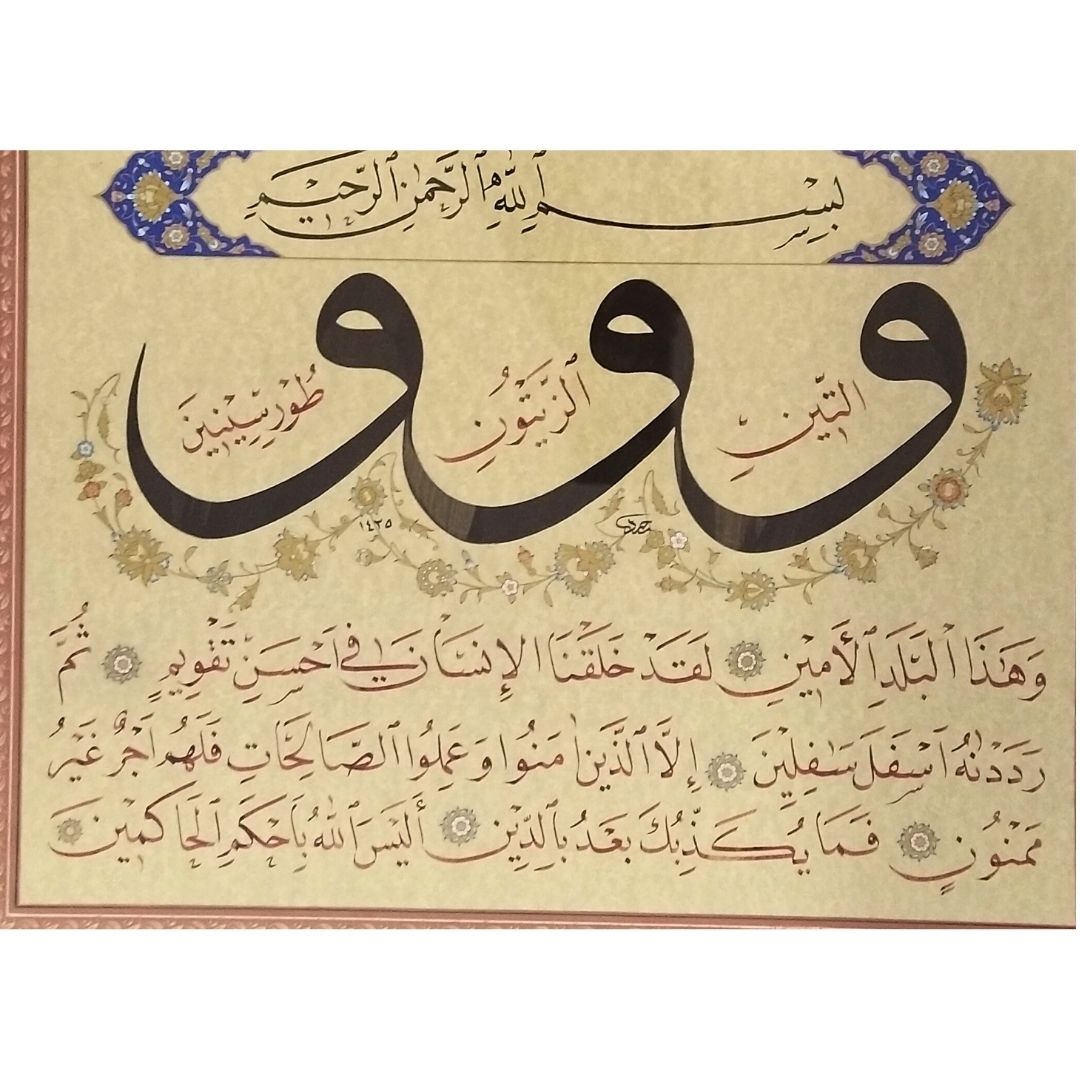 بِسْمِ ٱللَّهِ ٱلرَّحْمٰنِ ٱلرَّحِيمِ
وَ التِّينِ وَ الزَّيْتُونِ وَ طُورِ سِينِينَ
١٤٢٥
وَهَٰذَا ٱلْبَلَدِ ٱلْأَمِينِ لَقَدْ خَلَقْنَا الْإِنْسَانَ فِي أَحْسَنِ تَقْوِيمٍ ثُمَّ
رَدَدْنَٰهُ اَسْفَلَ سَٰفِلِينَ إِلَّا ٱلَّذِينَ اٰمَنُوا وَعَمِلُوا ٱلصَّالِحَاتِ فَلَهُمْ اَجْرٌ غَيْرُ
مَمْنُونٍ فَمَا يُكَذِّبُكَ بَعْدُ بِٱلدِّينِ أَلَيْسَ ٱللّٰهُ بِاَحْكَمِ ٱلْحَاكِمِينَ